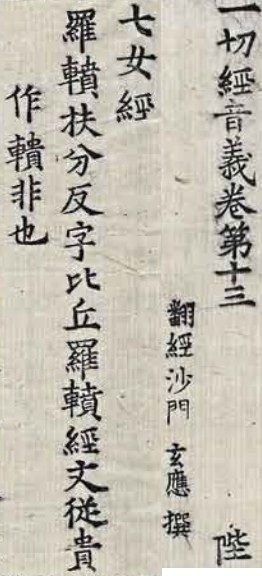 一切經音義卷第十三 陛
翻經沙門 玄應 撰
七女經
羅轒扶分反字比丘羅轒經文從貴
作䡺非也